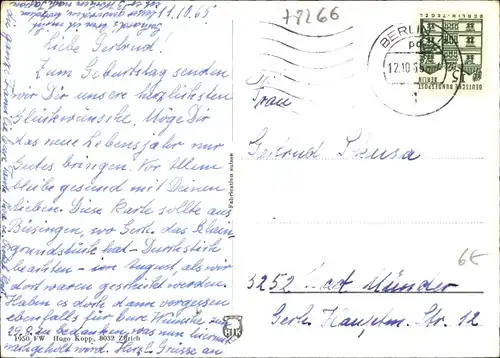 11.10.65
Liebe Gertrud!
Zum Geburtstag senden
wir Dir unsere herzlichsten
Glückwünsche. Möge Dir
das neue Lebensjahr nur
Gutes bringen. Vor allem
bleibe gesund mit Deinen
Lieben. Diese Karte sollte aus
Büsingen, wo Gerh. das Rhein-
grundstück hat - Durchstich
beachten - im August, als wir
dort waren geschickt werden.
Haben es doch dann vergessen
ebenfalls für Eure Wünsche zum
29.8. zu bedanken, was nun hiermit
nachgeholt wird. Herzl. Grüsse an
1950 FW Hugo Kopp, 8032 Zürich
Fabrication suisse
78266
BERLIN
12.10.65
1
15
DEUTSCHE BUNDESPOST
BERLIN
BERLIN-TEGEL
Frau
Gertrud Skusa
3252 Bad Münder
Gerh. Hauptm. Str. 12
6€